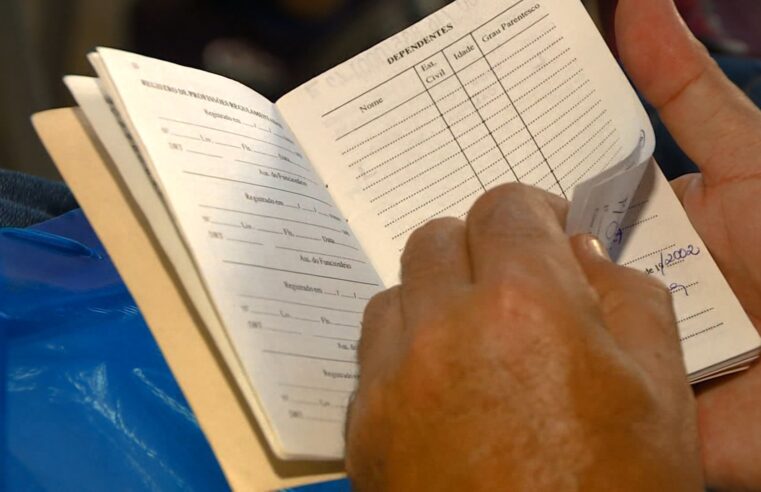 REGISTRO DE PROFISSÕES REGULAMENTADAS
Registrado em ..../..../....
Nº ........ Liv. ........ Fls. ........ Data ........
DRT ........
Ass. do Funcionário
Registrado em ..../..../....
Nº ........ Liv. ........ Fls. ........ Data ........
DRT ........
Ass. do Funcionário
Registrado em ..../..../....
Nº ........ Liv. ........ Fls.
DRT ........
Ass. do
Registrado em
Nº ........ Liv.
DRT ........
DEPENDENTES
Nome
Est. Civil
Idade
Grau Parentesco
de 19/2002